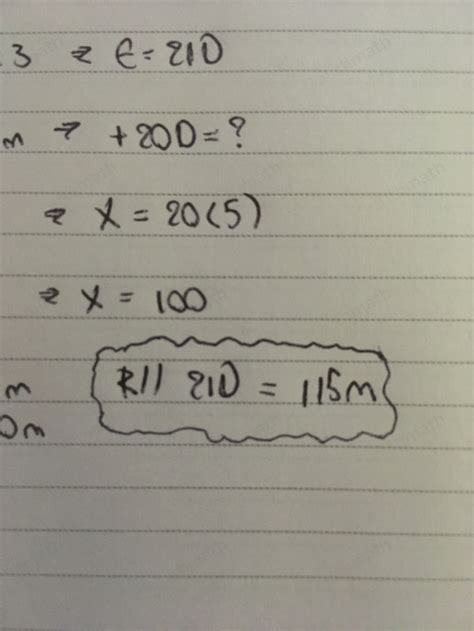 .3 → E = 21D
m → + 20D = ?
→ X = 20(5)
→ X = 100
m
0m
R// 21D = 115m